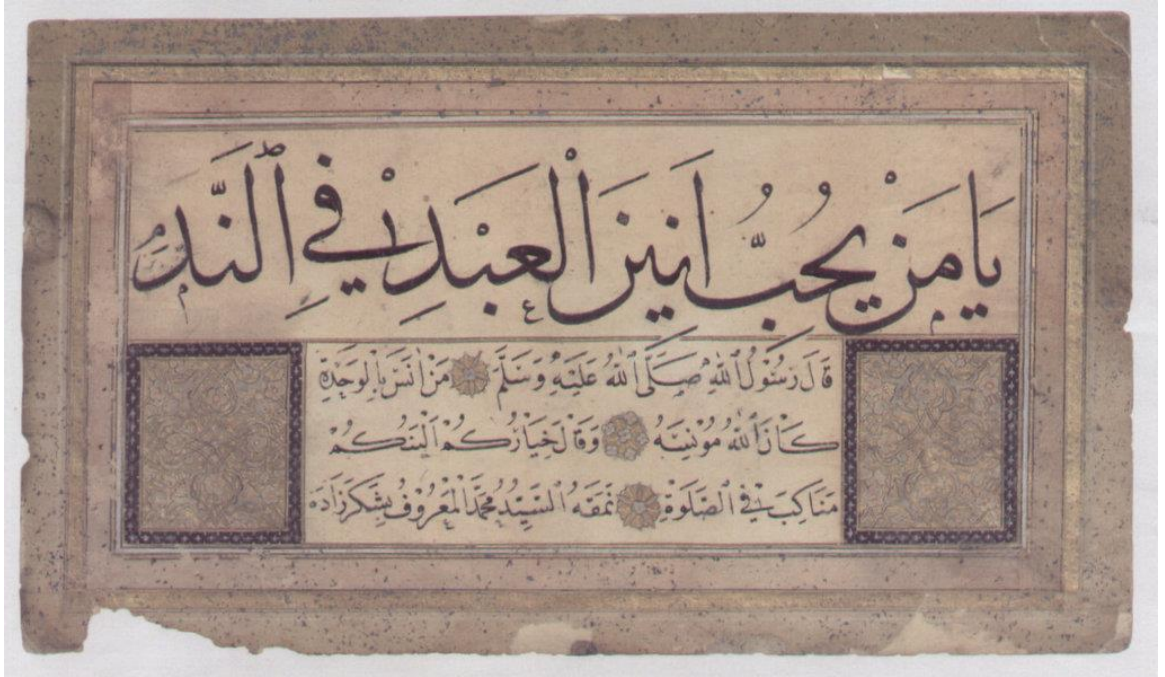 يَا مَنْ يُحِبُّ اَنِينَ الْعَبْدِ فِي النَّدَمِ
قَالَ رَسُولُ اللهِ صَلَّى اللهُ عَلَيْهِ وَسَلَّمَ مَنْ اَنَسَ بِالْوَحْدَةِ
كَانَ اللهُ مُونِسَهُ وَقَالَ خِيَارُكُمْ اَلْيَنُكُمْ
مَنَاكِبَ فِي الصَّلَوةِ نَمَقَهُ السَّيِّدُ مُحَمَّدُ الْمَعْرُوفُ بِشَكَرْزَادَه